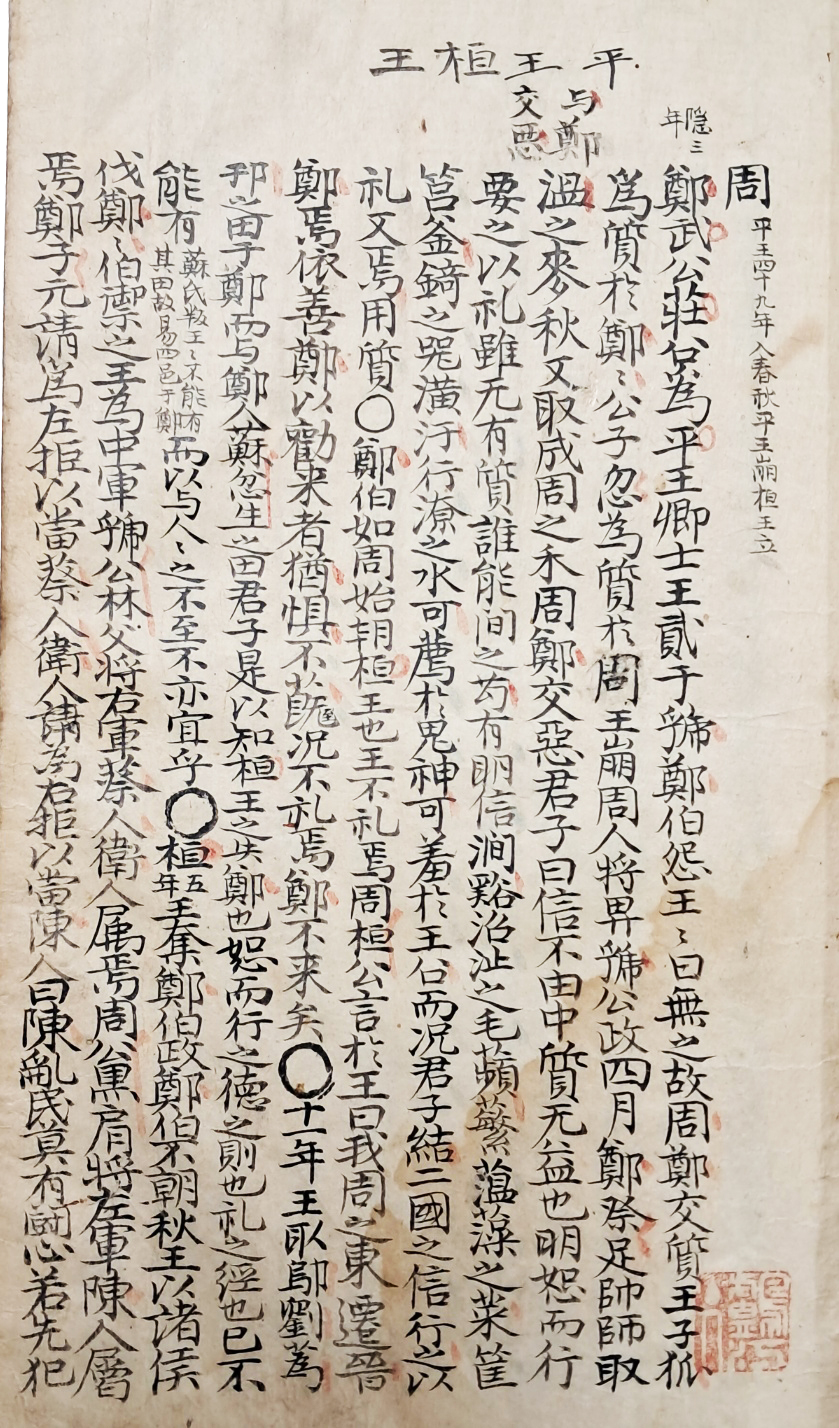 平王桓王
与鄭
交惡
隱三
年
周 平王四十九年入春秋平王崩桓王立
鄭武公莊公為平王卿士王貳于虢鄭伯怨王〻曰無之故周鄭交質王子狐
爲質於鄭〻公子忽為質於周王崩周人將畀虢公政四月鄭祭足帥師取
溫之麥秋又取成周之禾周鄭交惡君子曰信不由中質无益也明恕而行
要之以礼雖无有質誰能间之芶有明信澗谿沼沚之毛蘋蘩薀藻之菜筐
筥釜錡之噐潢汙行潦之水可薦於鬼神可羞於王公而况君子結二國之信行之以
礼又焉用質〇鄭伯如周始朝桓王也王不礼焉周桓公言於王曰我周之東遷晉
鄭焉依善鄭以勸来者猶惧不蔇况不礼焉鄭不来矣〇十一年王取鄔劉蔿
邘之田于鄭而与鄭人蘇忿生之田君子是以知桓王之失鄭也恕而行之德之則也礼之經也已不
能有蘇氏叛王〻不能有其田故易四邑于鄭而以与人〻之不至不亦宜乎〇桓五年王奪鄭伯政鄭伯不朝秋王以諸侯
伐鄭〻伯御之王為中軍虢公林父将右軍蔡人衛人属焉周公黒肩將左軍陳人屬
焉鄭子元請為左拒以當蔡人衛人請為右拒以當陳人曰陳亂民莫有鬪心若先犯